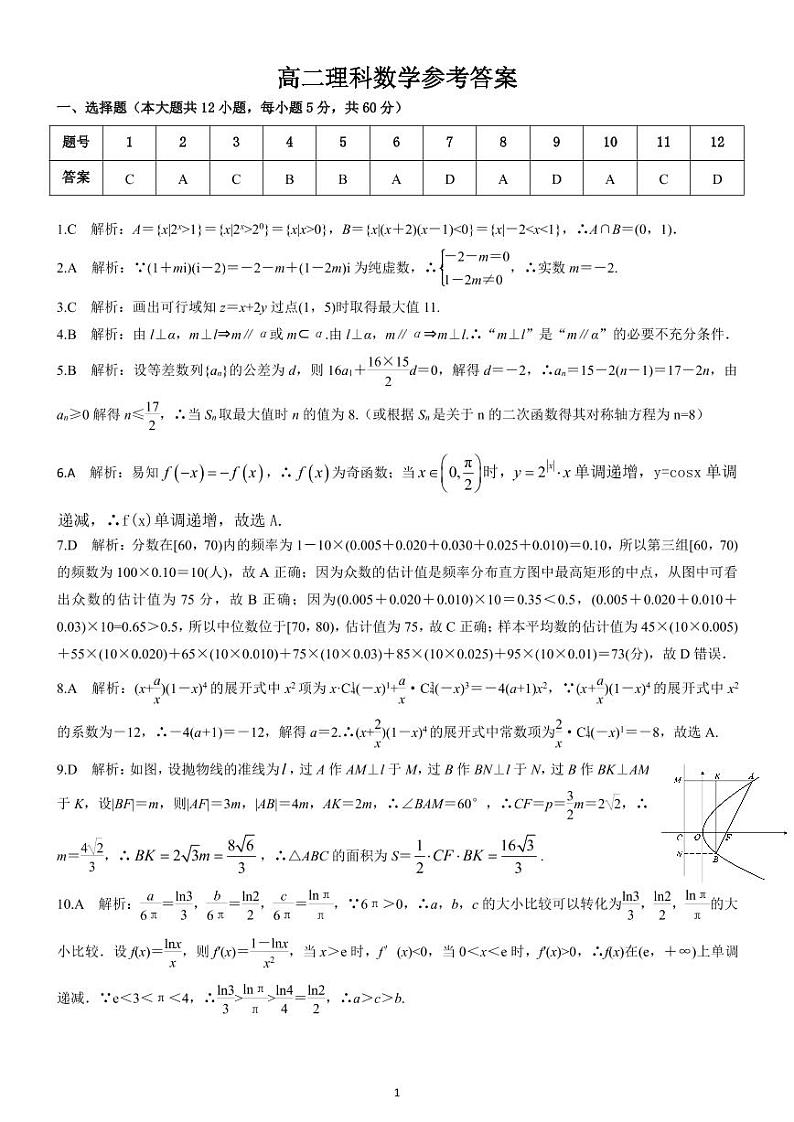 高二理科数学参考答案
一、选择题（本大题共 12 小题，每小题 5 分，共 60 分）
题号 1 2 3 4 5 6 7 8 9 10 11 12
答案 C A C B B A D A D A C D
1.C 解析：A＝{x|2ˣ>1}＝{x|2ˣ>2⁰}＝{x|x>0}，B＝{x|(x＋2)(x－1)<0}＝{x|－2<x<1}，∴A∩B＝(0，1)．
2.A 解析：∵(1＋mi)(i－2)＝－2－m＋(1－2m)i 为纯虚数，∴{－2－m＝0 1－2m≠0，∴实数 m＝－2.
3.C 解析：画出可行域知 z＝x+2y 过点(1，5)时取得最大值 11.
4.B 解析：由 l⊥α，m⊥l⇒m∥α或 m⊂α.由 l⊥α，m∥α⇒m⊥l.∴“m⊥l”是“m∥α”的必要不充分条件．
5.B 解析：设等差数列{aₙ}的公差为 d，则 16a₁＋16×15/2 d＝0，解得 d＝－2，∴aₙ＝15－2(n－1)＝17－2n，由
aₙ≥0 解得 n≤17/2，∴当 Sₙ取最大值时 n 的值为 8.（或根据 Sₙ是关于 n 的二次函数得其对称轴方程为 n=8）
6.A 解析：易知 f(−x)=−f(x)，∴ f(x)为奇函数；当 x∈(0,π/2)时，y=2^|x|·x 单调递增，y=cosx 单调
递减，∴f(x)单调递增，故选 A．
7.D 解析：分数在[60，70)内的频率为 1－10×(0.005＋0.020＋0.030＋0.025＋0.010)＝0.10，所以第三组[60，70)
的频数为 100×0.10＝10(人)，故 A 正确；因为众数的估计值是频率分布直方图中最高矩形的中点，从图中可看
出众数的估计值为 75 分，故 B 正确；因为(0.005＋0.020＋0.010)×10＝0.35＜0.5，(0.005＋0.020＋0.010＋
0.03)×10=0.65＞0.5，所以中位数位于[70，80)，估计值为 75，故 C 正确；样本平均数的估计值为 45×(10×0.005)
＋55×(10×0.020)＋65×(10×0.010)＋75×(10×0.03)＋85×(10×0.025)＋95×(10×0.01)＝73(分)，故 D 错误．
8.A 解析：(x+a/x)(1－x)⁴的展开式中 x²项为 x·C₄¹(－x)¹+a/x·C₄³(－x)³＝－4(a+1)x²，∵(x+a/x)(1－x)⁴的展开式中 x²
的系数为－12，∴－4(a+1)＝－12，解得 a＝2.∴(x+2/x)(1－x)⁴的展开式中常数项为2/x·C₄¹(－x)¹＝－8，故选 A.
9.D 解析：如图，设抛物线的准线为 l，过 A 作 AM⊥l 于 M，过 B 作 BN⊥l 于 N，过 B 作 BK⊥AM
于 K，设|BF|＝m，则|AF|＝3m，|AB|＝4m，AK＝2m，∴∠BAM＝60°，∴CF＝p＝3/2 m＝2√2，∴
m＝4√2/3，∴ BK＝2√3m＝8√6/3，∴△ABC 的面积为 S＝1/2·CF·BK＝16√3/3．
M K A
C O F
N B
10.A 解析：a/6π＝ln3/3，b/6π＝ln2/2，c/6π＝lnπ/π，∵6π＞0，∴a，b，c 的大小比较可以转化为ln3/3，ln2/2，lnπ/π的大
小比较．设 f(x)＝lnx/x，则 f′(x)＝1－lnx/x²，当 x＞e 时，f′(x)<0，当 0＜x＜e 时，f′(x)>0，∴f(x)在(e，＋∞)上单调
递减．∵e＜3＜π＜4，∴ln3/3>lnπ/π>ln4/4＝ln2/2，∴a＞c＞b.
1